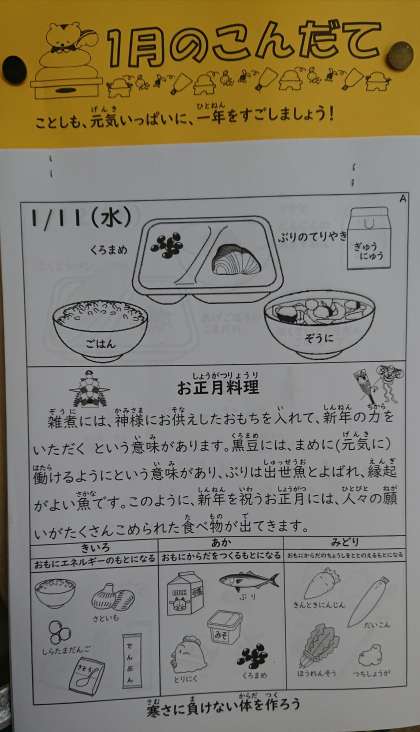 1月のこんだて
ことしも、元気いっぱいに、一年をすごしましょう！
A
1/11(水)
くろまめ
ぶりのてりやき
ぎゅう
にゅう
ごはん
ぞうに
お正月料理
雑煮には、神様にお供えしたおもちを入れて、新年の力を
いただく という意味があります。黒豆には、まめに(元気に)
働けるようにという意味があり、ぶりは出世魚とよばれ、縁起
がよい魚です。このように、新年を祝うお正月には、人々の願
いがたくさんこめられた食べ物が出てきます。
きいろ
あか
みどり
おもにエネルギーのもとになる
おもにからだをつくるもとになる
おもにからだのちょうしをととのえるもとになる
さといも
しらたまだんご
さとう
でんぷん
ぶり
みそ
とりにく
くろまめ
きんときにんじん
だいこん
ほうれんそう
つちしょうが
寒さに負けない体を作ろう